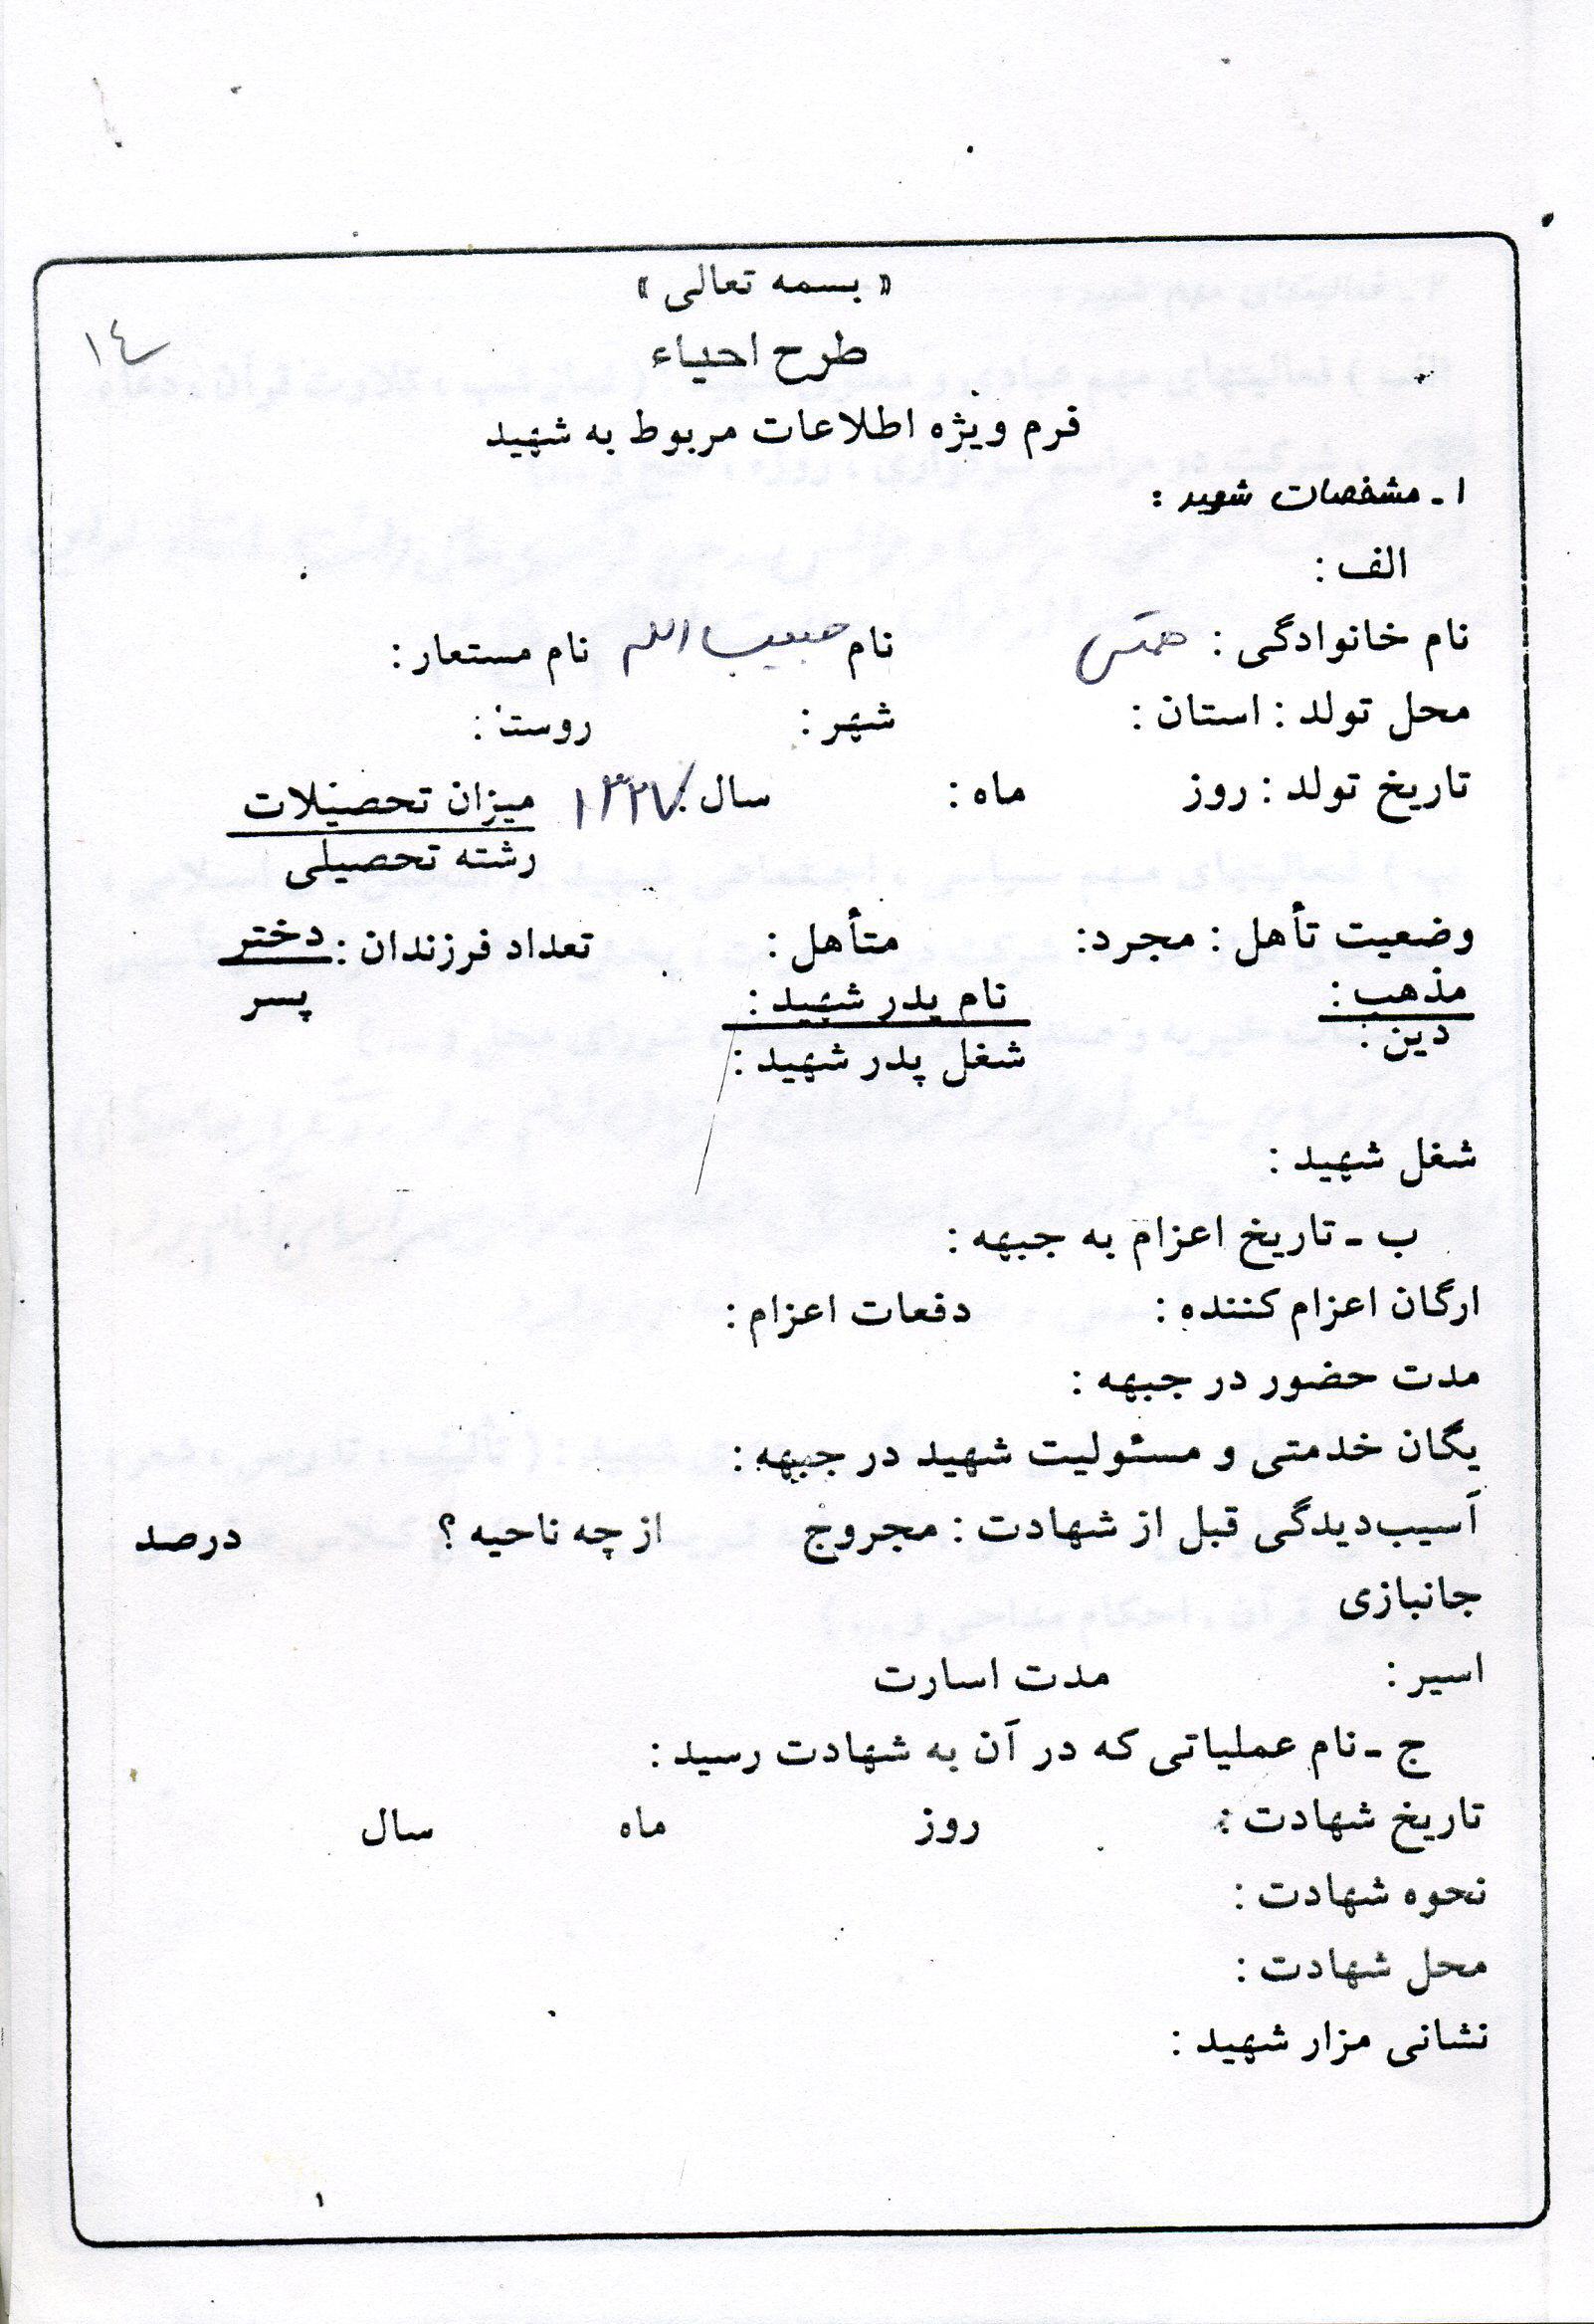 « بسمه تعالی »
طرح احیاء
۱۴
فرم ویژه اطلاعات مربوط به شهید
۱ ـ مشخصات شهید :
الف :
نام خانوادگی : همتی نام حبیب الله نام مستعار :
محل تولد : استان : شهر : روستا :
تاریخ تولد : روز ماه : سال : ۱۳۲۷ میزان تحصیلات
رشته تحصیلی
وضعیت تأهل : مجرد: متأهل : تعداد فرزندان : دختر
پسر
مذهب : نام پدر شهید :
دین : شغل پدر شهید :
شغل شهید :
ب ـ تاریخ اعزام به جبهه :
ارگان اعزام کننده : دفعات اعزام :
مدت حضور در جبهه :
یگان خدمتی و مسئولیت شهید در جبهه :
آسیب‌دیدگی قبل از شهادت : مجروح از چه ناحیه ؟ درصد
جانبازی
اسیر : مدت اسارت
ج ـ نام عملیاتی که در آن به شهادت رسید :
تاریخ شهادت : روز ماه سال
نحوه شهادت :
محل شهادت :
نشانی مزار شهید :
۱